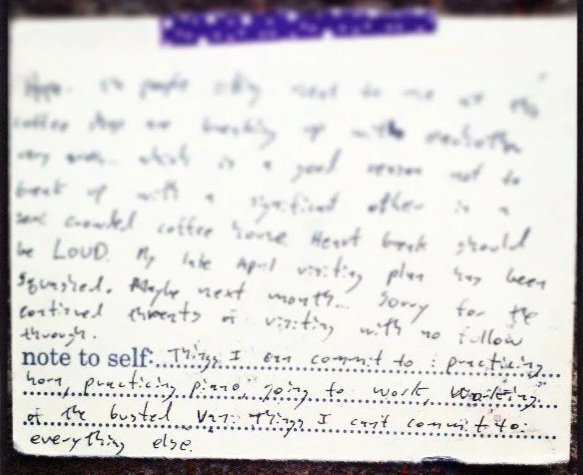 people sitting next to me at this
coffee shop are breaking up with eachother
very which is a good reason not to
break up with a significant other in a
semi crowded coffee house. Heart break should
be LOUD. My late April visiting plan has been
squashed. Maybe next month... Sorry for the
continued threats of visiting with no follow
through.
note to self: Things I can commit to: practicing
horn, practicing piano, going to work, "working"
of the busted Van. Things I can't commit to:
everything else.